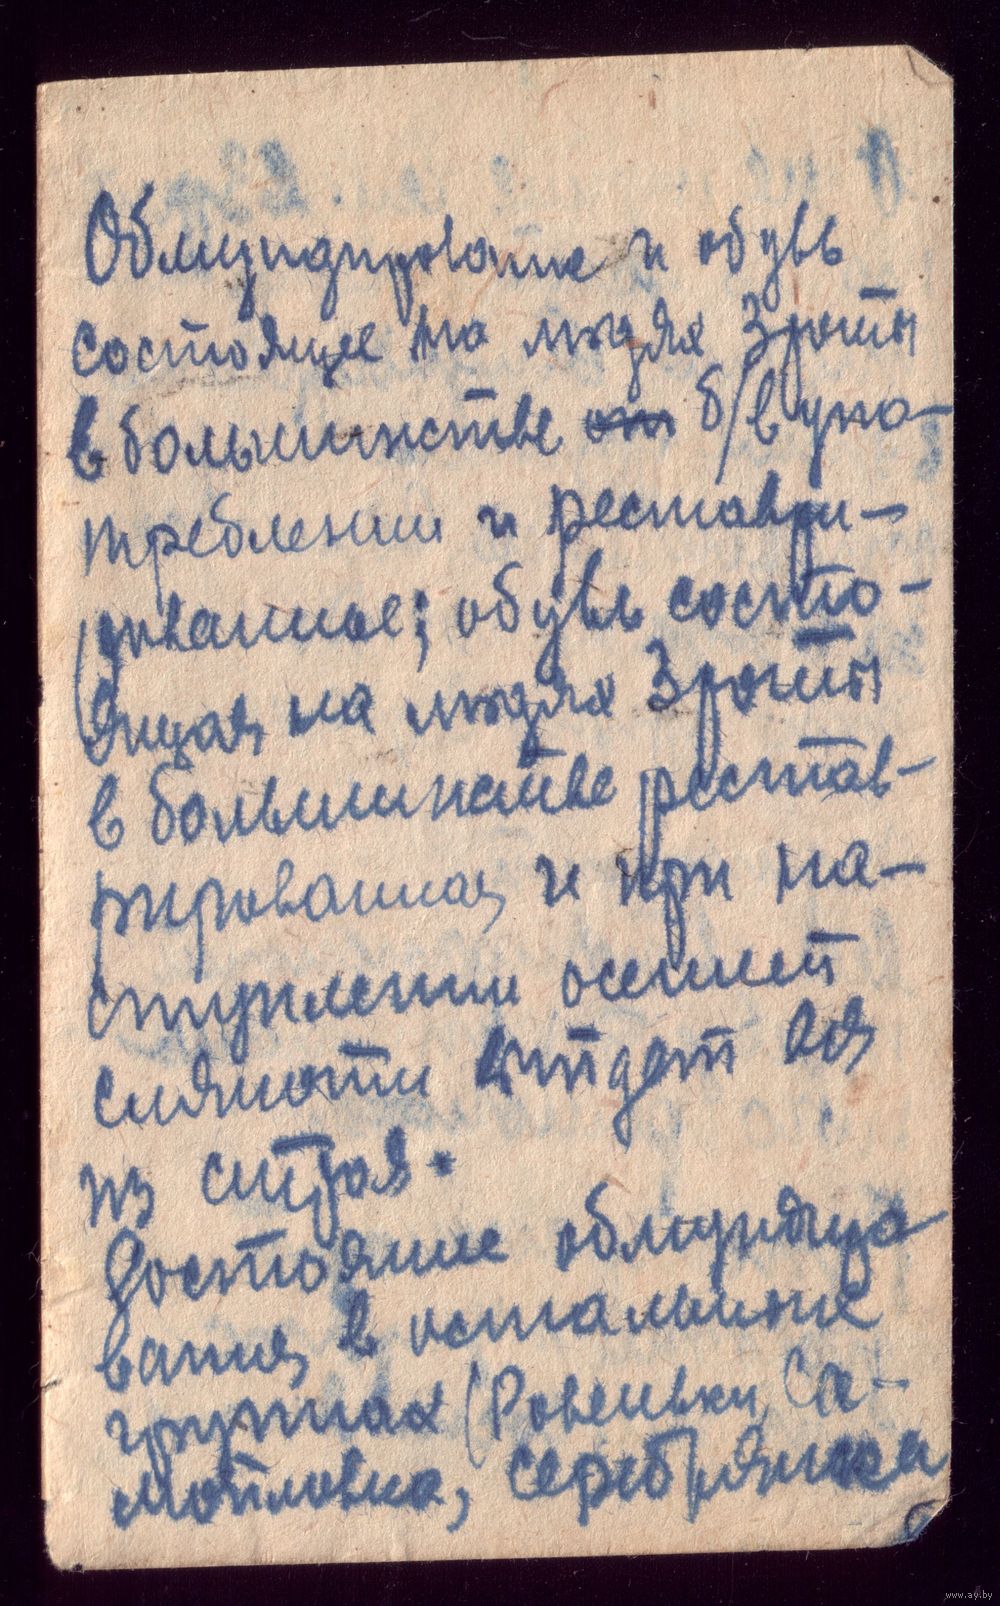 Обмундирование и обувь
состоящее на людях 3 роты
в большинстве б/в упо-
треблении и реставри-
рованное; обувь состо-
ящая на людях 3 роты
в большинстве рестав-
рированная и при на-
ступлении осенней
слякоти выйдет вся
из строя.
Состояние обмундиро
вания в остальных
группах (Ровеньки, Са-
мойловка, Серебрянка
www.ay.by